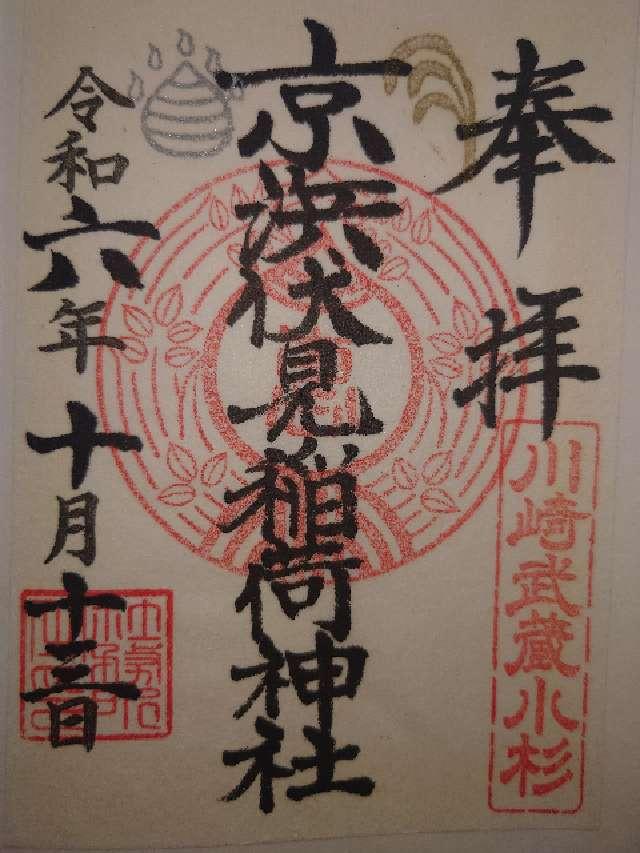 奉拝
川崎武蔵小杉
京浜伏見稲荷神社
令和六年十月十三日